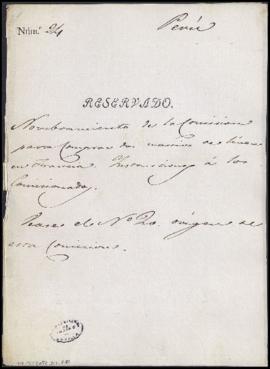 Perú
Núm.º 24
RESERVADO.
Nombramiento de la Comision
para Comprar dos navios de linea
en Francia. Instrucciones á los
Comisionados.
Vease el Nº 20. origen de
esta Comision.